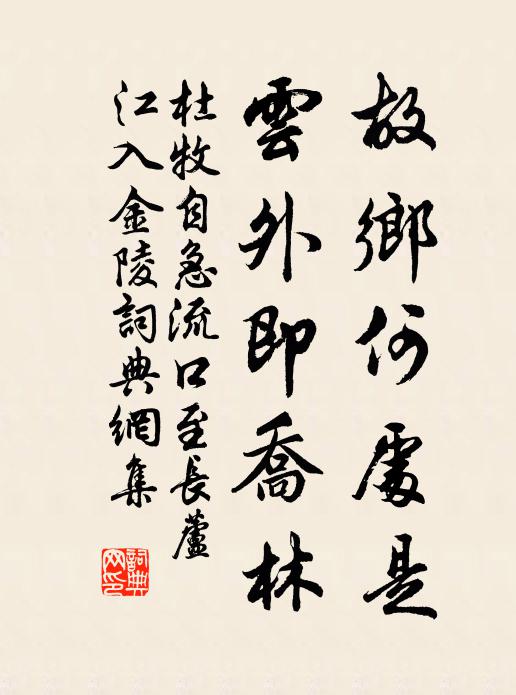 故鄉何處是
雲外即喬林
杜牧自急流口至長蘆
江入金陵詞典網集
詞典
网印